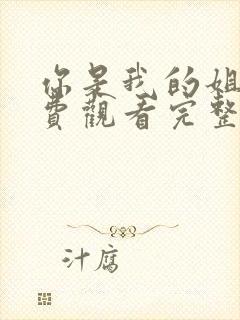 你是我的姐
费觀看完整
汁腐